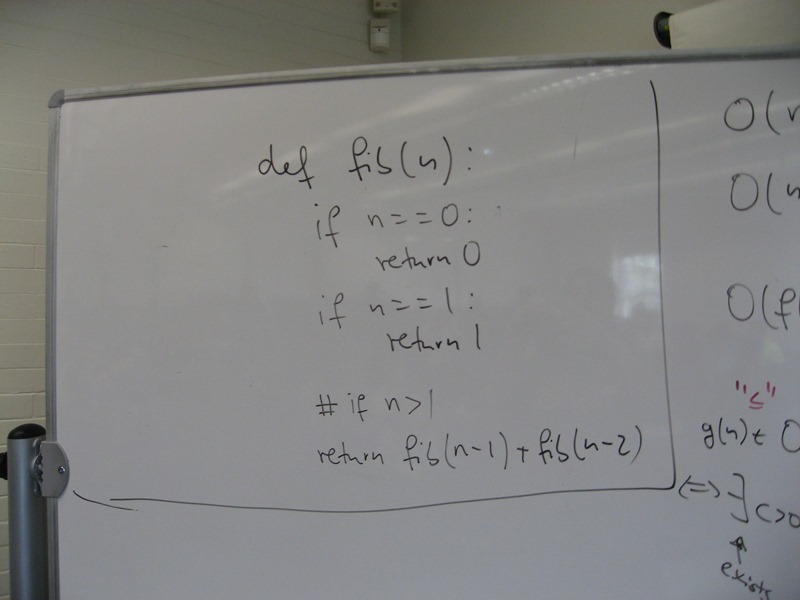 def fib(n):
if n==0:
return 0
if n==1:
return 1
# if n>1
return fib(n-1)+fib(n-2)
O(n
O(n
O(f(
"≤"
g(n) ∈ O
<=> ∃ c>0
exists